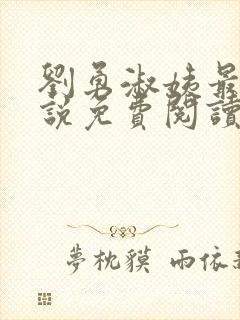 劉勇淑姨最
說免費閱讀
夢枕貘 雨依